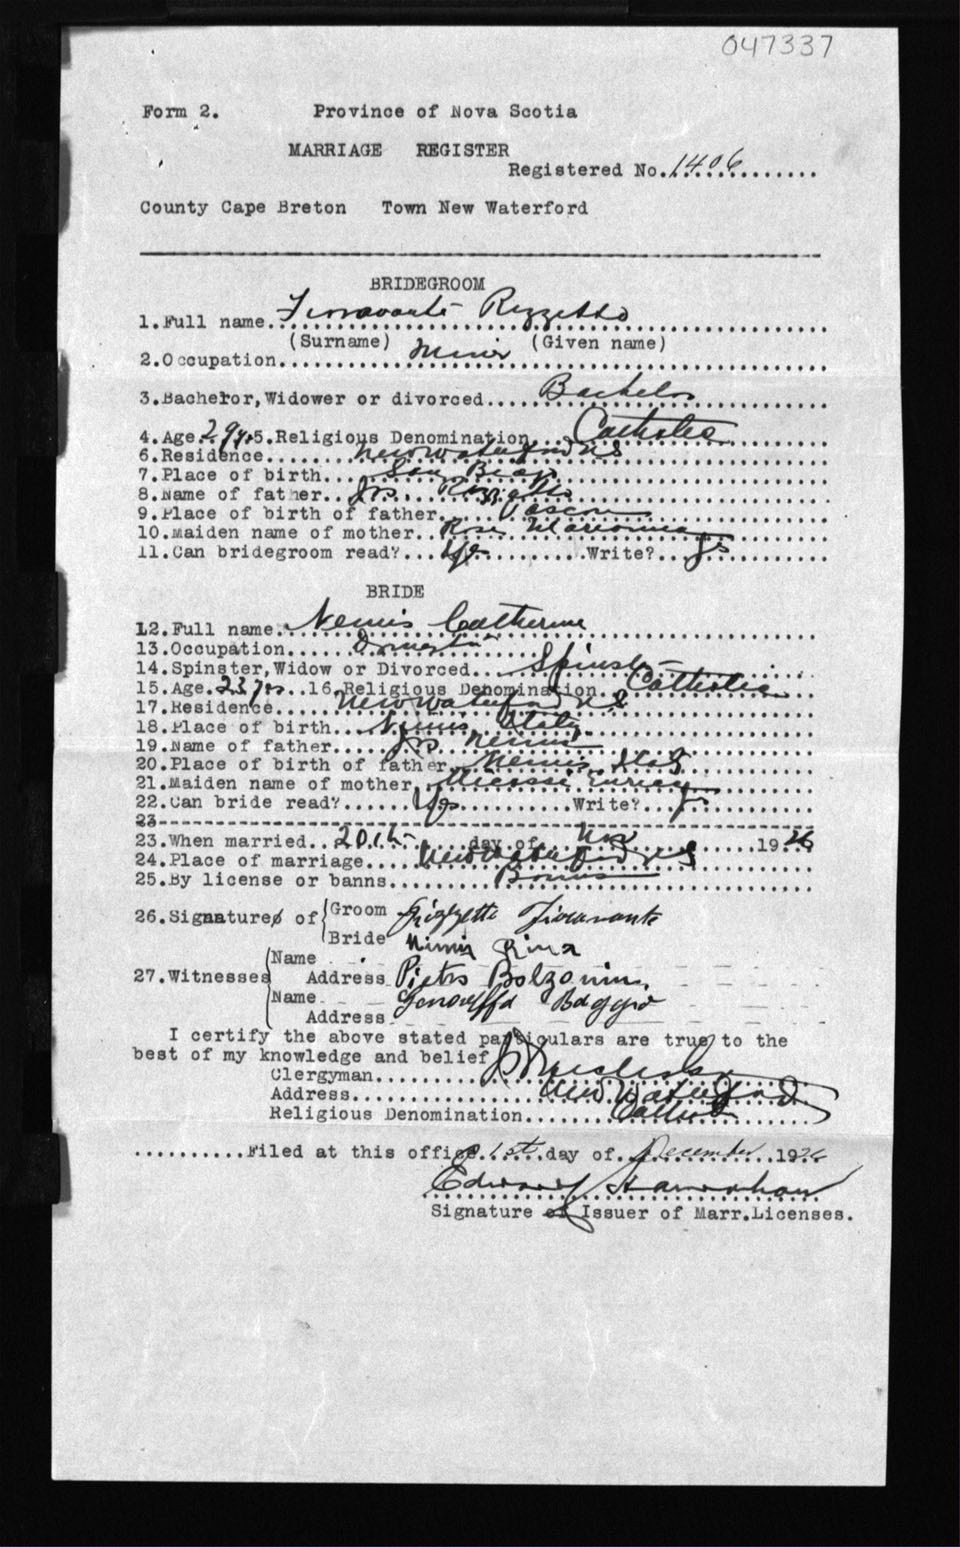 047337
Form 2. Province of Nova Scotia
MARRIAGE REGISTER
Registered No. 1406
County Cape Breton Town New Waterford
BRIDEGROOM
1.Full name. Fioravante Rizzetto
(Surname) (Given name)
2.Occupation Miner
3.Bachelor, Widower or divorced Bachelor
4.Age 29 yrs 5.Religious Denomination Catholic
6.Residence New Waterford NS
7.Place of birth San
8.Name of father Jos Rizzetto
9.Place of birth of father
10.Maiden name of mother Rose
11.Can bridegroom read? Yes Write? Yes
BRIDE
12.Full name. Nemis Catherine
13.Occupation Domestic
14.Spinster, Widow or Divorced Spinster
15.Age 23 yrs 16.Religious Denomination Catholic
17.Residence New Waterford NS
18.Place of birth Nemis Italy
19.Name of father Jos Nemis
20.Place of birth of father Nemis Italy
21.Maiden name of mother
22.Can bride read? Yes Write? Yes
23
23.When married 20th day of Nov 1926
24.Place of marriage New Waterford NS
25.By license or banns Banns
26.Signatures of Groom Rizzetto Fioravante
Bride Nimis Rina
27.Witnesses Name
Address Pietro Bolzonin
Name Genoveffa Baggio
Address
I certify the above stated particulars are true to the
best of my knowledge and belief
Clergyman
Address New Waterford
Religious Denomination Catholic
Filed at this office 1st day of December 1926
Edward Hanrahan
Signature of Issuer of Marr.Licenses.